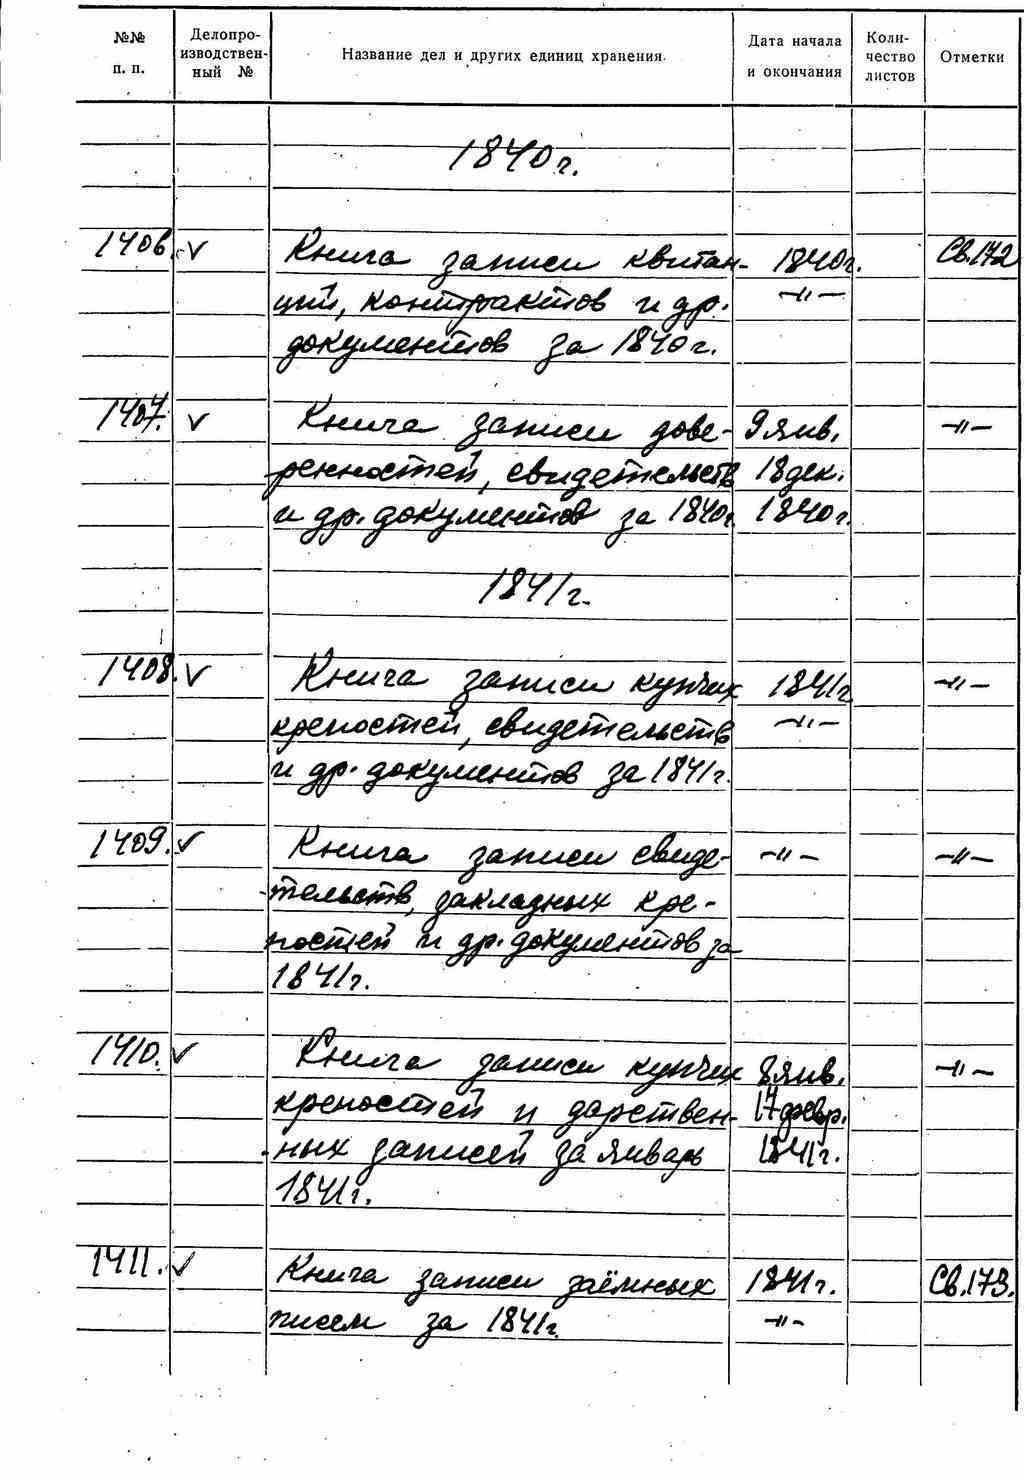 №№ п. п. | Делопроизводственный № | Название дел и других единиц хранения. | Дата начала и окончания | Количество листов | Отметки
1840г.
1406. ✓ Книга записи квитан- 1840г. Св.172
ций, контрактов и др. —"—
документов за 1840г.
1407. ✓ Книга записи дове- 9 янв. —"—
ренностей, свидетельств 18 дек.
и др. документов за 1840г. 1840г.
1841г.
1408. ✓ Книга записи купчих 1841г —"—
крепостей, свидетельств —"—
и др. документов за 1841г.
1409. ✓ Книга записи свиде- —"— —"—
тельств, закладных кре-
постей и др. документов за
1841г.
1410. ✓ Книга записи купчих 8 янв. —"—
крепостей и дарствен- 17 февр.
ных записей за январь 1841г.
1841г.
1411. ✓ Книга записи заёмных 1841г. Св.173.
писем за 1841г. —"—